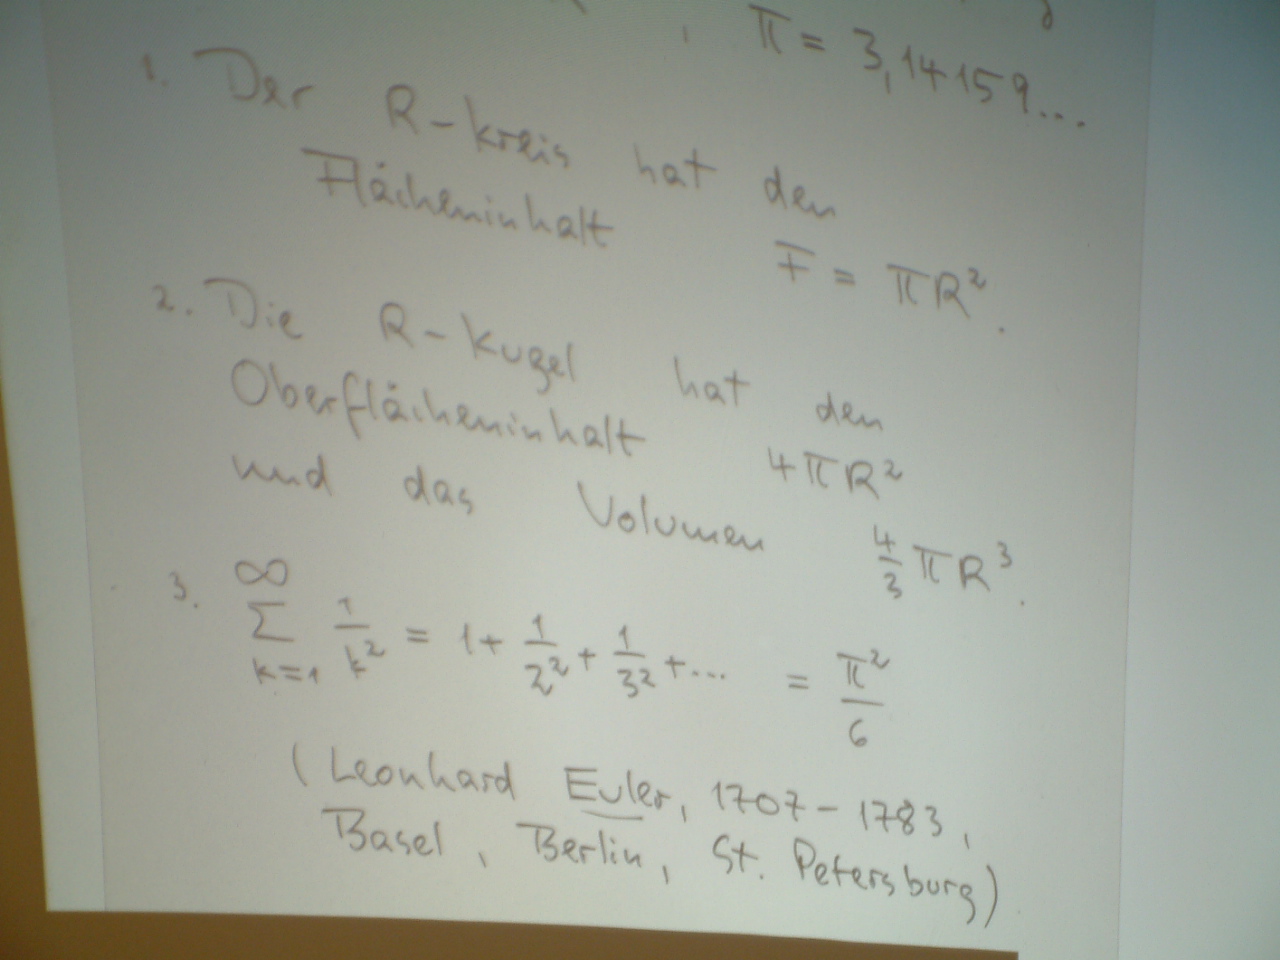 π = 3,14159...
1. Der R-Kreis hat den
Flächeninhalt F = πR².
2. Die R-Kugel hat den
Oberflächeninhalt 4πR²
und das Volumen 4/3 πR³.
3. ∑_{k=1}^{∞} 1/k² = 1 + 1/2² + 1/3² + ... = π²/6
(Leonhard Euler, 1707-1783,
Basel, Berlin, St. Petersburg)